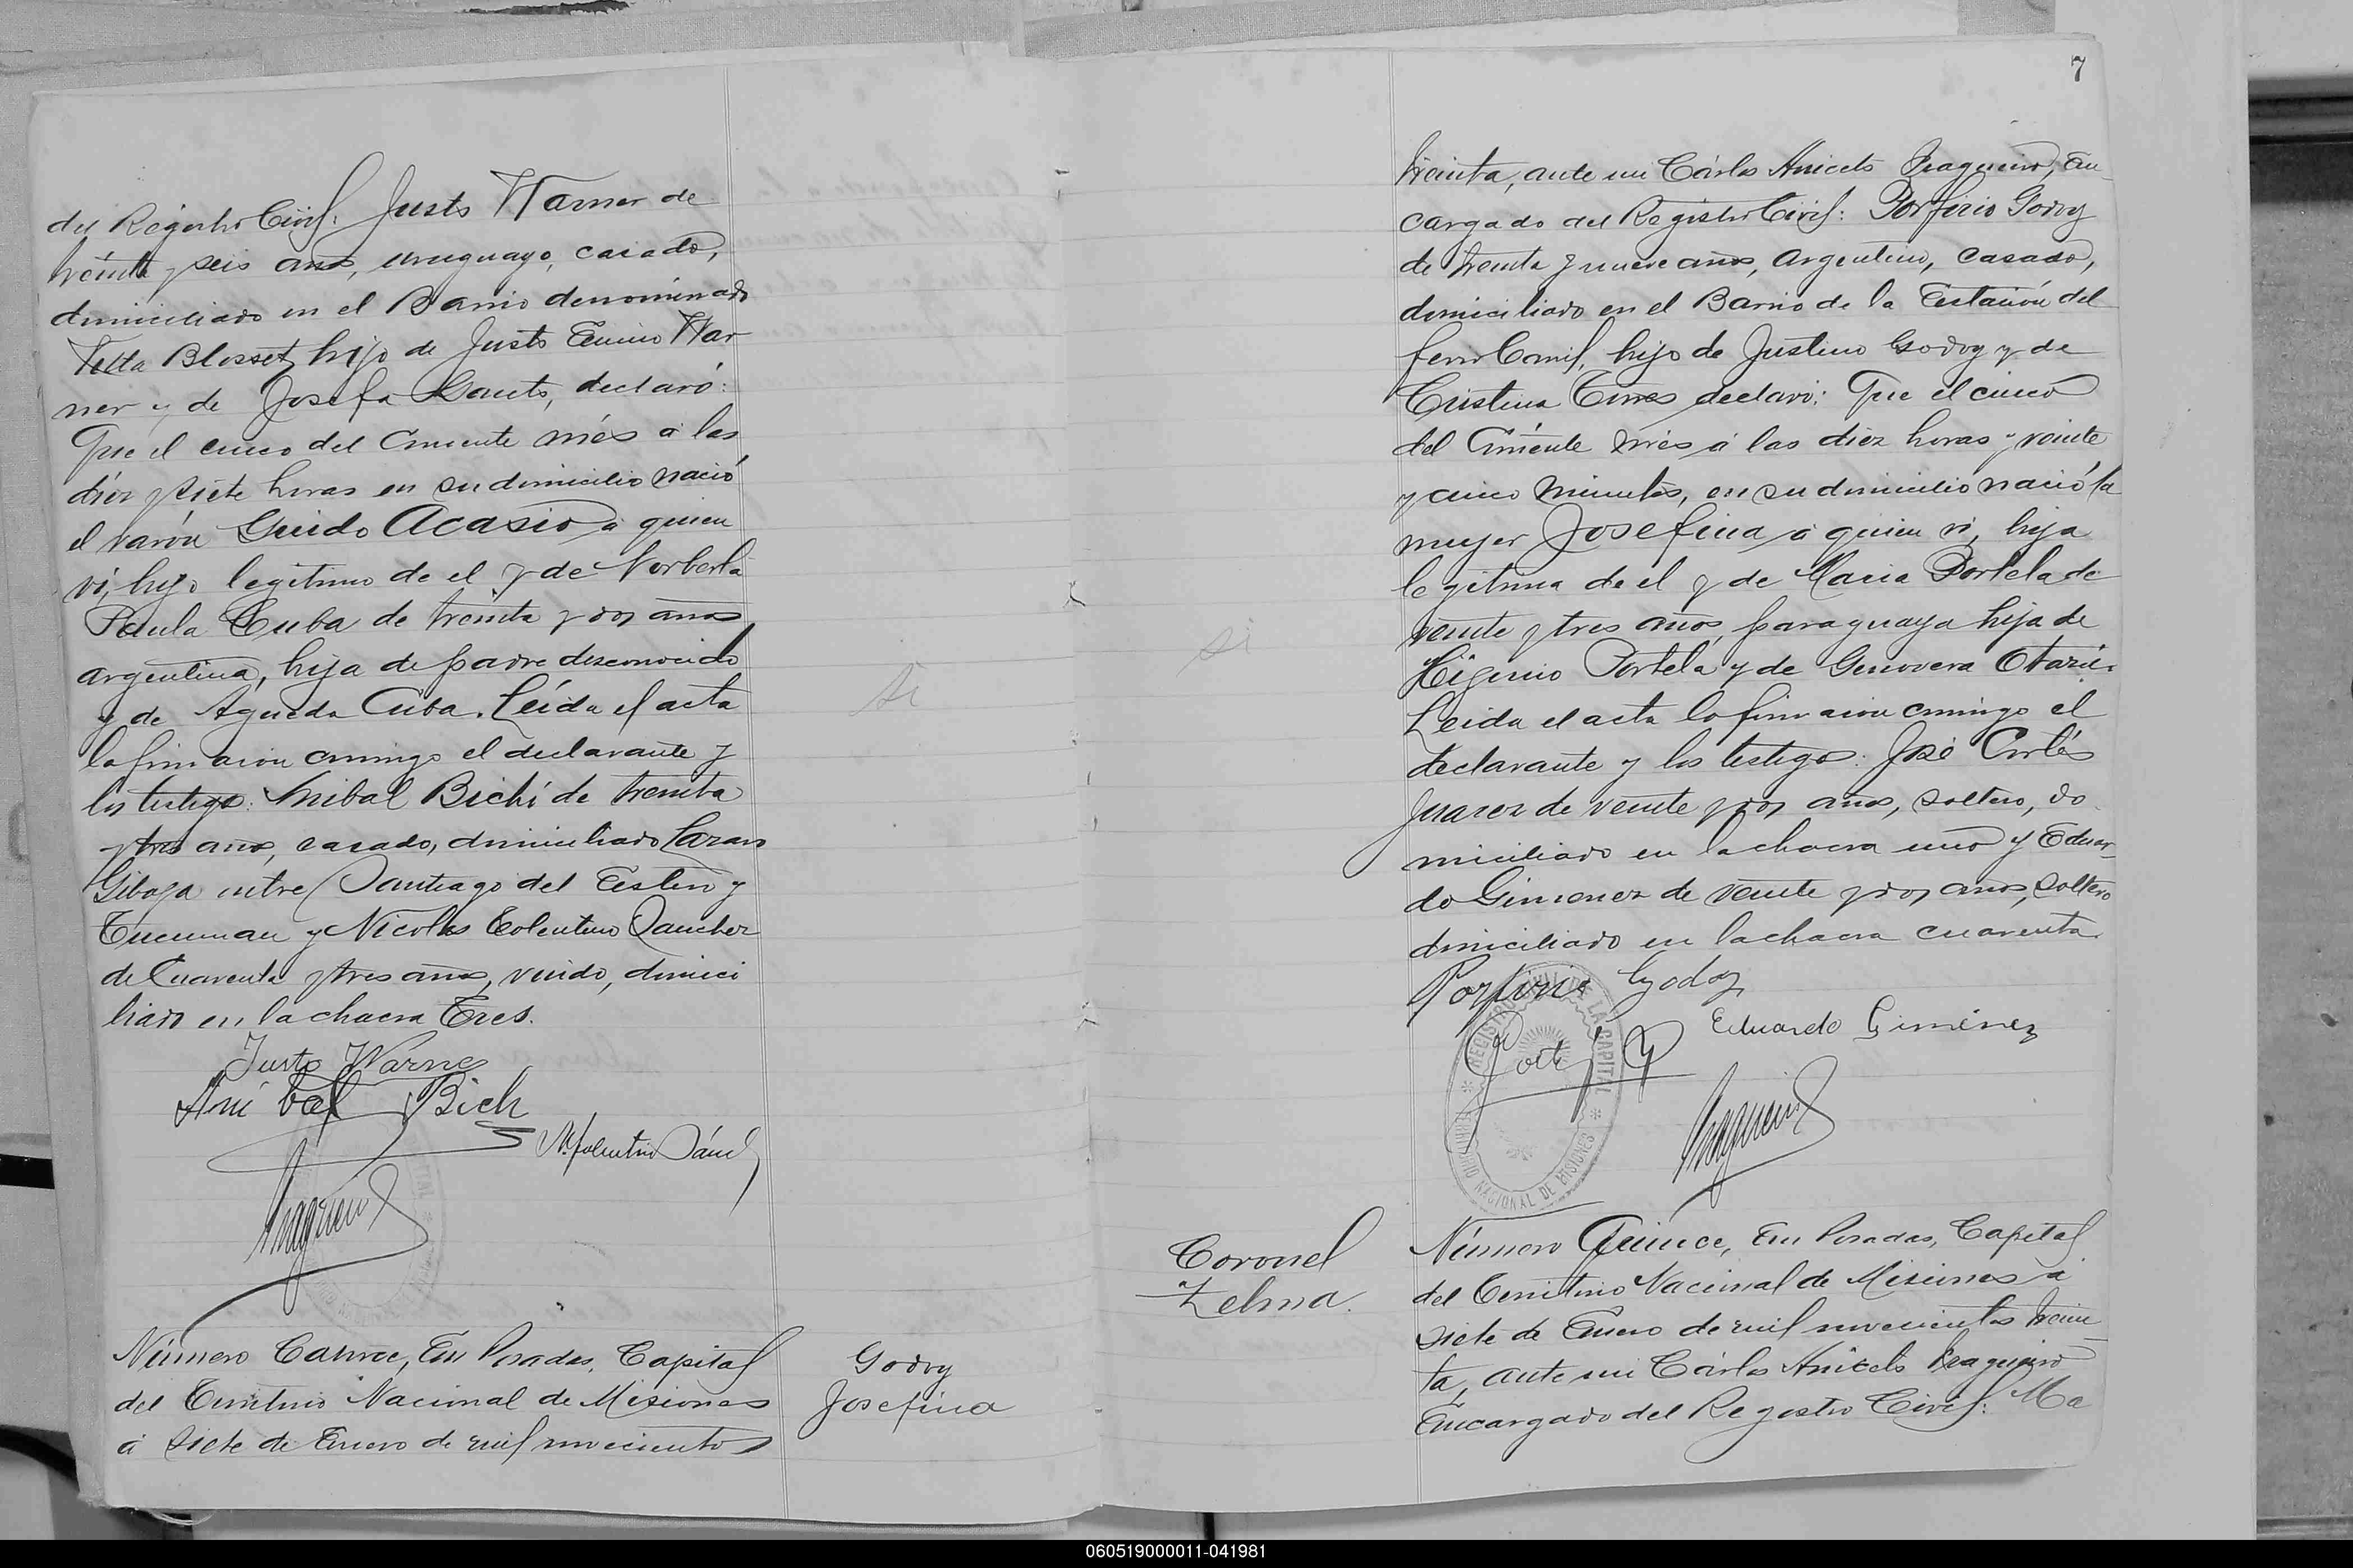 del Registro Civil: Justo Warner de
treinta y seis años, uruguayo, casado,
domiciliado en el Barrio denominado
Villa Blosset, hijo de Justo War-
ner y de Josefa declaró:
Que el cinco del corriente més á las
diez y siete horas en su domicilio nació
el varón Guido Acasio á quien
ví, hijo legítimo de el y de Norberta
Paula Cuba de treinta y dos años
argentina, hija de padre desconocido
y de Agueda Cuba. Leída el acta
la firmaron conmigo el declarante y
los testigos: Anibal Bichi de treinta
y tres años, casado, domiciliado
entre Santiago del Estero y
Tucuman y Nicolas Tolentino Sanchez
de Cuarenta y tres años, viudo, domici
liado en la chacra Tres.
Justo Warner
Anibal Bich
N. Tolentino Sánch
Número Catorce, En Posadas, Capital
del Territorio Nacional de Misiones
á siete de Enero de mil novecientos
Godoy
Josefina
si
7
treinta, ante mi Cárlos Aniceto Fragueiro, En-
cargado del Registro Civil: Porfirio Godoy
de treinta y nueve años, argentino, casado,
domiciliado en el Barrio de la Estación del
ferro Carril, hijo de Justino Godoy y de
Cristina declaró: Que el cinco
del Corriente més á las diez horas y veinte
y cinco minutos, en su domicilio nació la
mujer Josefina á quien ví, hija
legítima de el y de Maria Portela de
veinte y tres años, paraguaya hija de
Higinio Portela y de Genoveva Otazú.
Leida el acta la firmaron conmigo el
declarante y los testigos: José Cortés
Juarez de veinte y dos años, soltero, do
miciliado en la chacra uno y Eduar-
do Gimenez de veinte y dos años, soltero
domiciliado en la chacra cuarenta.
Porfirio Godoy
Eduardo Giménez
REGISTRO CIVIL DE LA CAPITAL
TERRITORIO NACIONAL DE MISIONES
si
Coronel
Zelma.
Número Quince, En Posadas, Capital
del Territorio Nacional de Misiones á
siete de Enero de mil novecientos trein-
ta, ante mi Cárlos Aniceto Fragueiro
Encargado del Registro Civil: Ma
060519000011-041981